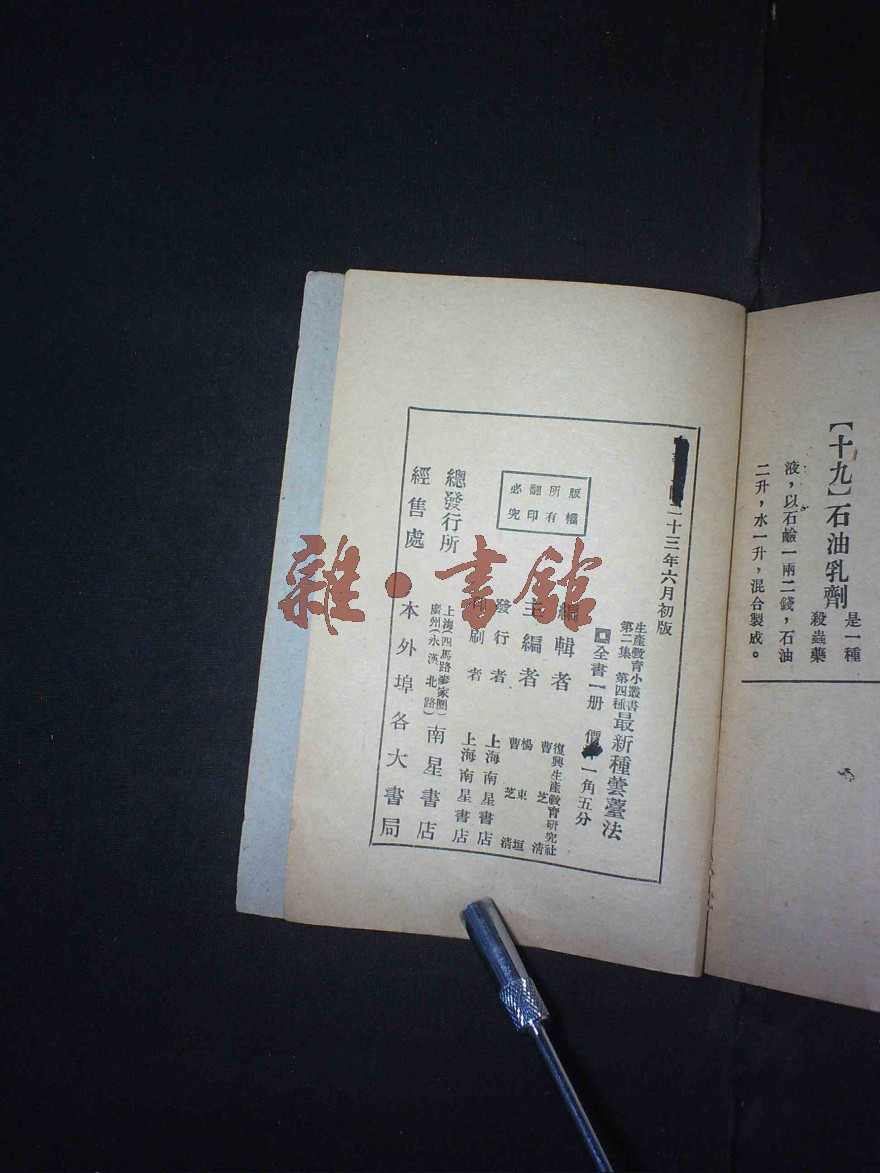 【十九】石油乳劑
是一種
殺蟲藥
液，以石鹼一兩二錢，石油
二升，水一升，混合製成。
二十三年六月初版
生產教育小叢書
第二集 第四種
最新種蕓薹法
全書一册 價 一角五分
編輯者 復興生產教育研究社
曹芝清
主編者 楊東垣
曹芝清
發行者 上海南星書店
印刷者 上海南星書店
版權所有
翻印必究
總發行所 上海(四馬路 家圈)
廣州(永漢北路)
南星書店
經售處 本外埠各大書局
雜·書館